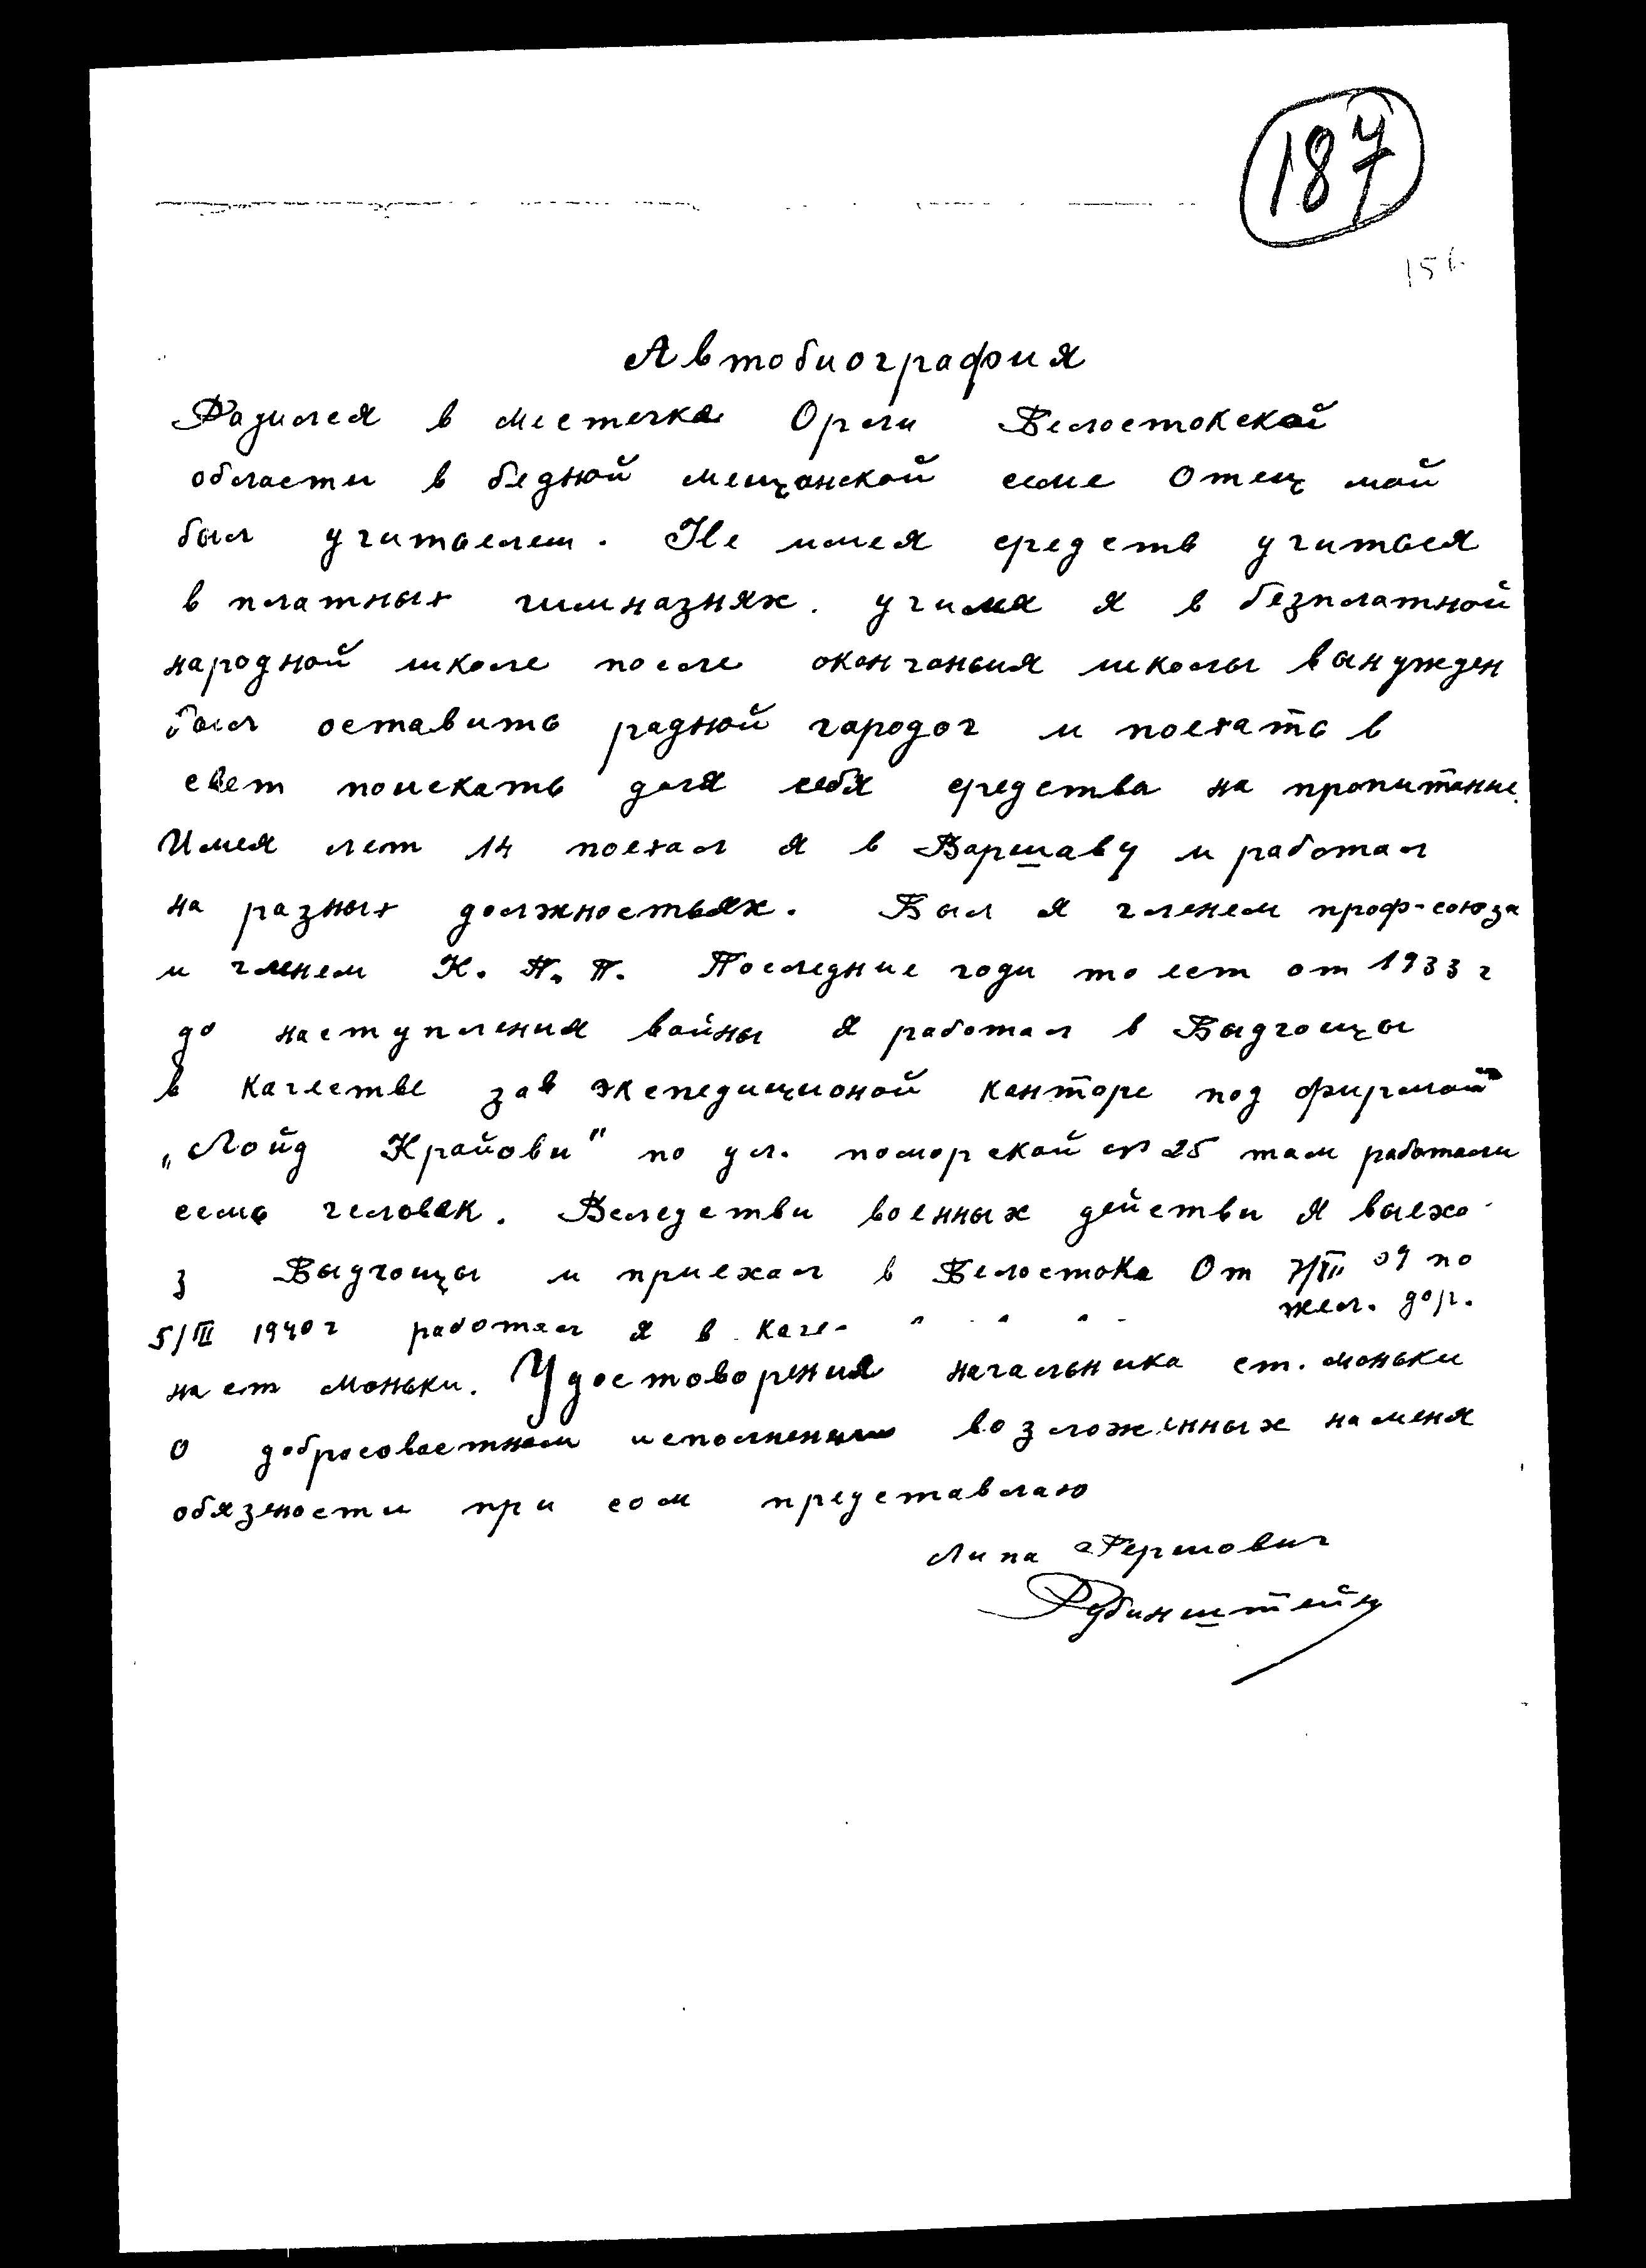 187
156
Автобиография
Радился в местечке Орли Белостокской
области в бедной мещанской семе Отец мой
был учитьелем. Не имея средств учиться
в платных гимназиях. учился я в безплатной
народной школе после окончанья школы вынужден
был оставить радной городог и поехать в
свет поискать для себя средства на пропитание.
Имея лет 14 поехал я в Варшаву и работал
на разных должностьях. Был я членем проф-союза
и членем К. П. П. Последние годи то ест от 1933 г
до наступления войны я работал в Быдгощы
в качестве зав экспедиционой канторе под фирмой
„Лойд Крайови" по ул. поморской № 25 там работали
семь человек. Вследстви военных действи я выеха
з Быдгощы и приехал в Белостока От 39 по
5/III 1940 г работал я в каче- жел. дор.
на ст Моньки. Удостоворения начальника ст. моньки
о добросовестном исполнении возложенных на меня
обязености при сом представлаю
Липа Гершович
Рубинштейн